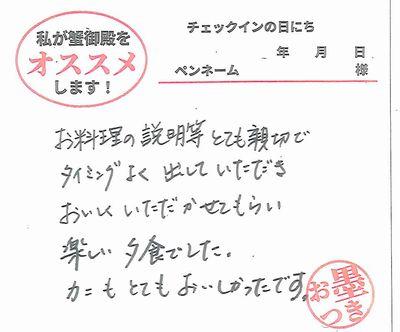 私が蟹御殿を
オススメ
します！
チェックインの日にち
年 月 日
ペンネーム 様
お料理の説明等とても親切で
タイミングよく出していただき
おいしくいただかせてもらい
楽しい夕食でした。
カニもとてもおいしかったです。
お墨つき